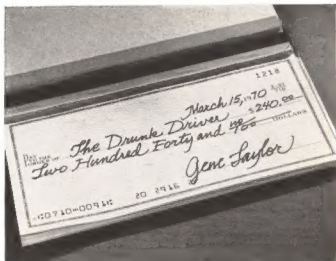 1218
March 15, 1970
PAY TO THE ORDER OF The Drunk Driver $240.00
Two Hundred Forty and no/100 DOLLARS
20 2416 Gene Taylor
⑆0710⑉0091⑆